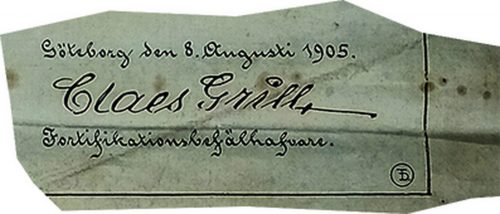 Göteborg den 8. Augusti 1905.
Claes Grill
Fortifikationsbefälhafvare.